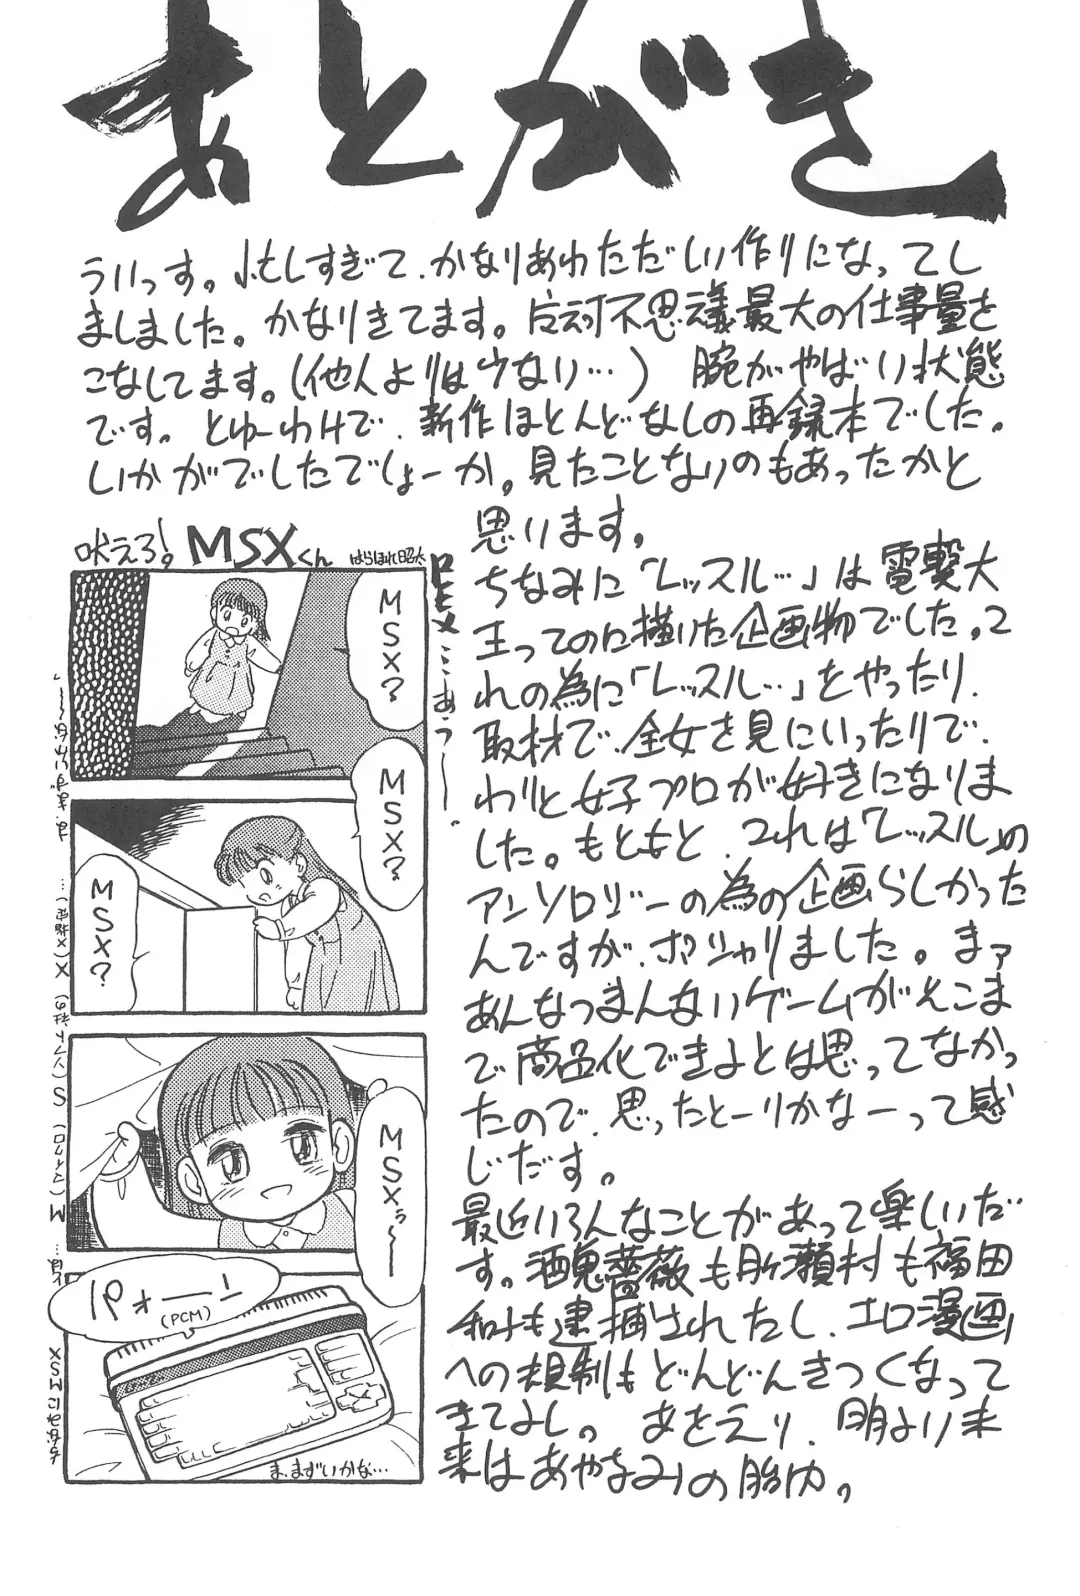 あとがき
ういっす。忙しすぎて、かなりあわただしい作りになってし
ましました。かなりきてます。反対不思議最大の仕事量を
こなしてます。(他人よりは少ない…) 腕がやばい状態
です。とゆーわけで、新作ほとんどなしの再録本でした。
いかがでしたでしょーか。見たことないのもあったかと
思います。
ちなみに「レッスル…」は電撃大
王ってのに描いた企画物でした。こ
れの為に「レッスル…」をやったり、
取材で、全女を見にいったりで、
わりと女子プロが好きになりま
した。もともと、これは「レッスル」の
アンソロジーの為の企画らしかった
んですが、ポシャりました。まァ
あんなつまんないゲームがそこま
で商品化できるとは思ってなかっ
たので、思ったとーりかなーって感
じだす。
最近いろんなことがあって楽しいだ
す。酒鬼薔薇も月ヶ瀬村も福田
和子も逮捕されたし、エロ漫画
への規制もどんどんきつくなって
きてよし。 あをえり、明より未
来はあやなみの胎内。
吠えろ!MSXくん
はらほれ昭太
MSX?
MSX?
MSX?
MSXぅ〜
パォーー!
(PCM)
ま、まずいかな…
ちなみにMSX